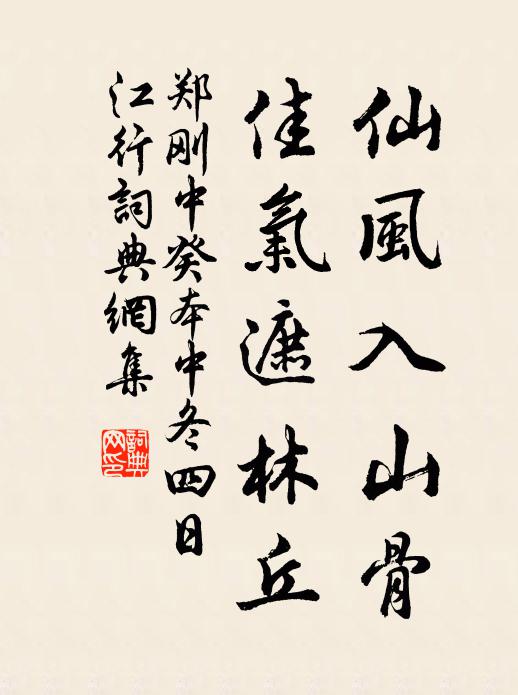 仙風入山骨
佳氣遮林丘
郑刚中癸本中冬四日
江行詞典網集
詞典
网印